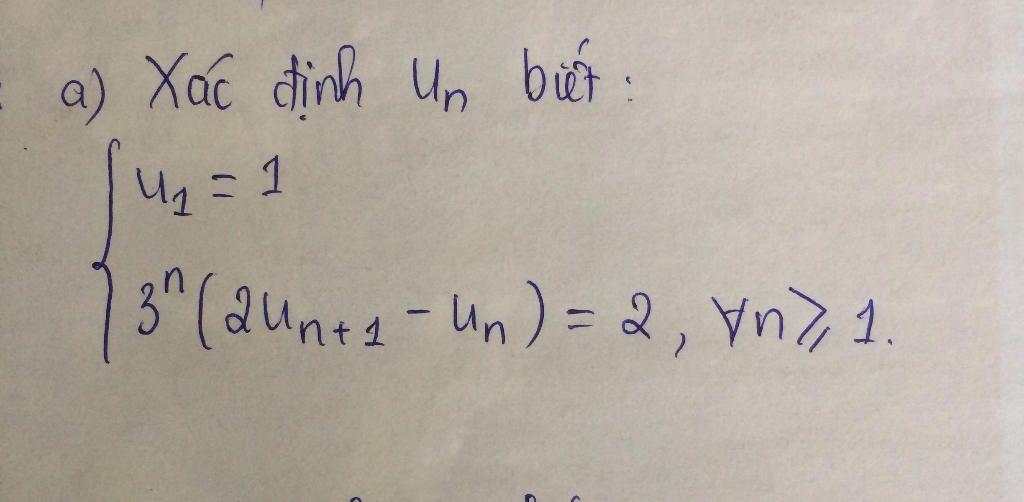 a) Xác định uₙ biết:
{ u₁ = 1
3ⁿ(2uₙ₊₁ - uₙ) = 2, ∀n ⩾ 1.